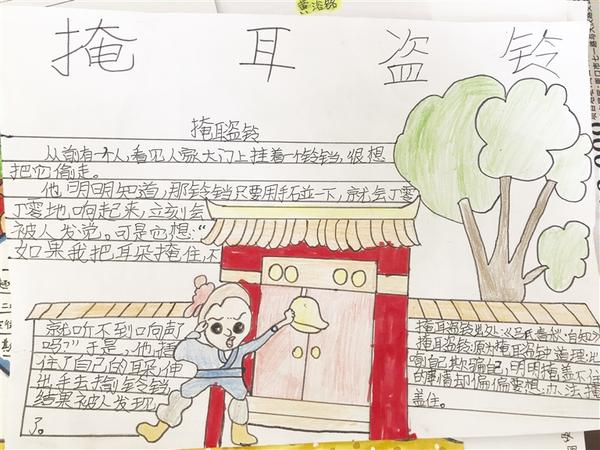 黄冶铭
掩耳盗铃
掩耳盗铃
从前有一个人,看见人家大门上挂着一个铃铛,很想
把它偷走。
他明明知道,那铃铛只要用手石並一下,就会丁零
丁零地响起来,立刻会
被人发觉。可是它想:“
如果我把耳朵掩住,不
就听不到响声了
吗?”于是,他捂
住了自己的耳朵,伸
出手去摘铃铛
结果被人发现
了。
掩耳盗铃出处:《吕氏春秋·自知》
掩耳盗铃:原为掩耳盗钟道理:比
喻自己欺骗自己,明明掩盖不住
的事情却偏偏要想办法掩
盖住。